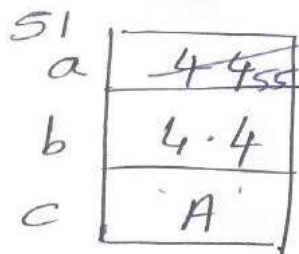 51
a 4 4 55
b 4.4
c 'A'